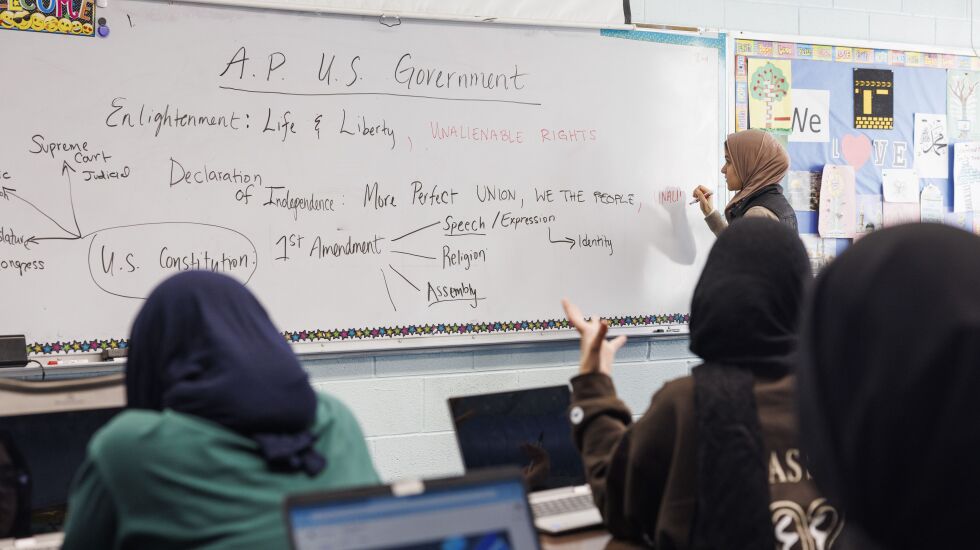 WELCOME
A.P. U.S. Government
Enlightenment: Life & Liberty, UNALIENABLE RIGHTS
Supreme
Court
Judicial
Declaration
of Independence: More Perfect UNION, WE THE PEOPLE,
1st Amendment
Speech / Expression
Identity
Religion
Assembly
U.S. Constitution
We
LOVE